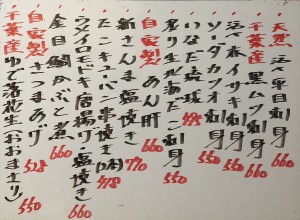 天然 活〆平目刺身 660
千葉産 黒ムツ刺身 660
活〆本イサキ刺身 550
ソーダカツオ刺身 550
いなだ琉球
炙り生北海たこ刺身 550
自家製 あん肝 660
新さんま塩焼き 770
たこキューバン串焼き(1本) 418
ウメイロモドキ唐揚げ・塩焼き 660
金目鯛かぶと煮 660
自家製さつまあげ 528
千葉産 ゆで落花生(おおまさり) 550